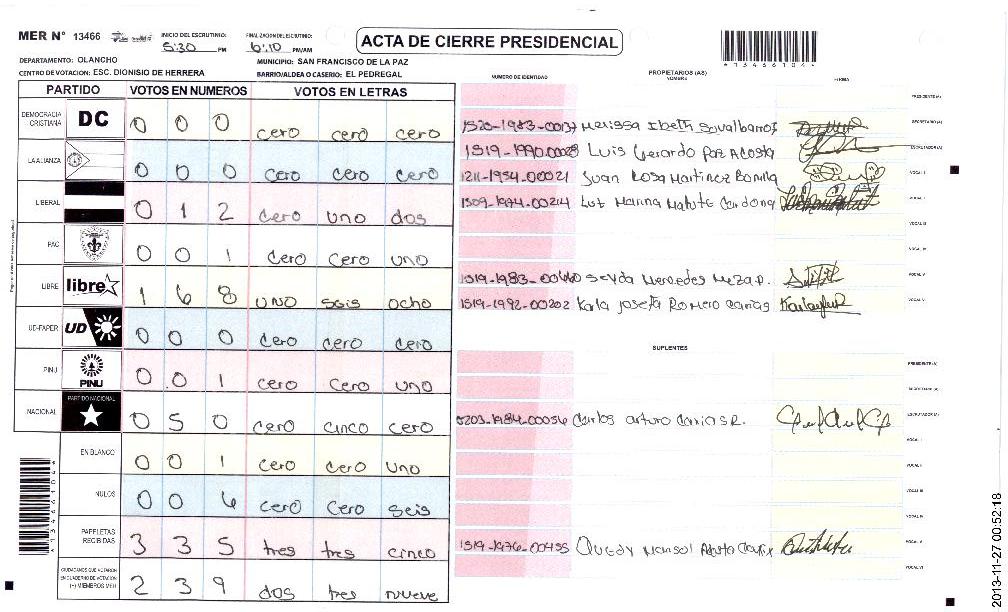 MER N° 13466
INICIO DEL ESCRUTINIO: 5:30 PM
FINALIZACION DEL ESCRUTINIO: 6:10 PM/AM
ACTA DE CIERRE PRESIDENCIAL
*134661044
DEPARTAMENTO: OLANCHO
MUNICIPIO: SAN FRANCISCO DE LA PAZ
CENTRO DE VOTACION: ESC. DIONISIO DE HERRERA
BARRIO/ALDEA O CASERIO: EL PEDREGAL
PARTIDO VOTOS EN NUMEROS VOTOS EN LETRAS
DEMOCRACIA CRISTIANA DC 0 0 0 cero cero cero
LA ALIANZA 0 0 0 cero cero cero
LIBERAL 0 1 2 cero uno dos
PAC 0 0 1 cero cero uno
LIBRE libre 1 6 8 uno seis ocho
UD-FAPER UD 0 0 0 cero cero cero
PINU PINU 0 0 1 cero cero uno
NACIONAL PARTIDO NACIONAL 0 5 0 cero cinco cero
EN BLANCO 0 0 1 cero cero uno
NULOS 0 0 6 cero cero seis
PAPELETAS RECIBIDAS 3 3 5 tres tres cinco
CIUDADANOS QUE VOTARON EN CUADERNO DE VOTACION (+) MIEMBROS MER 2 3 9 dos tres nueve
NUMERO DE IDENTIDAD PROPIETARIOS (AS) NOMBRE FIRMA
PRESIDENTE (A)
1520-1983-00137 Melissa Ibeth SECRETARIO (A)
1519-1990-00028 Luis Gerardo Paz Acosta ESCRUTADOR (A)
1211-1954-00021 Juan Rosa Martinez Bonilla VOCAL I
1509-1974-00214 Luz Marina Matute Cardona
VOCAL III
VOCAL IV
Mercedes Meza VOCAL V
1519-1992-00202 Karla Josefa Romero VOCAL VI
SUPLENTES
PRESIDENTE (A)
SECRETARIO (A)
0203-1984-00056 Carlos arturo ESCRUTADOR (A)
VOCAL I
VOCAL II
VOCAL III
VOCAL IV
1519-1976-00455 VOCAL V
VOCAL VI
2013-11-27 00:52:18